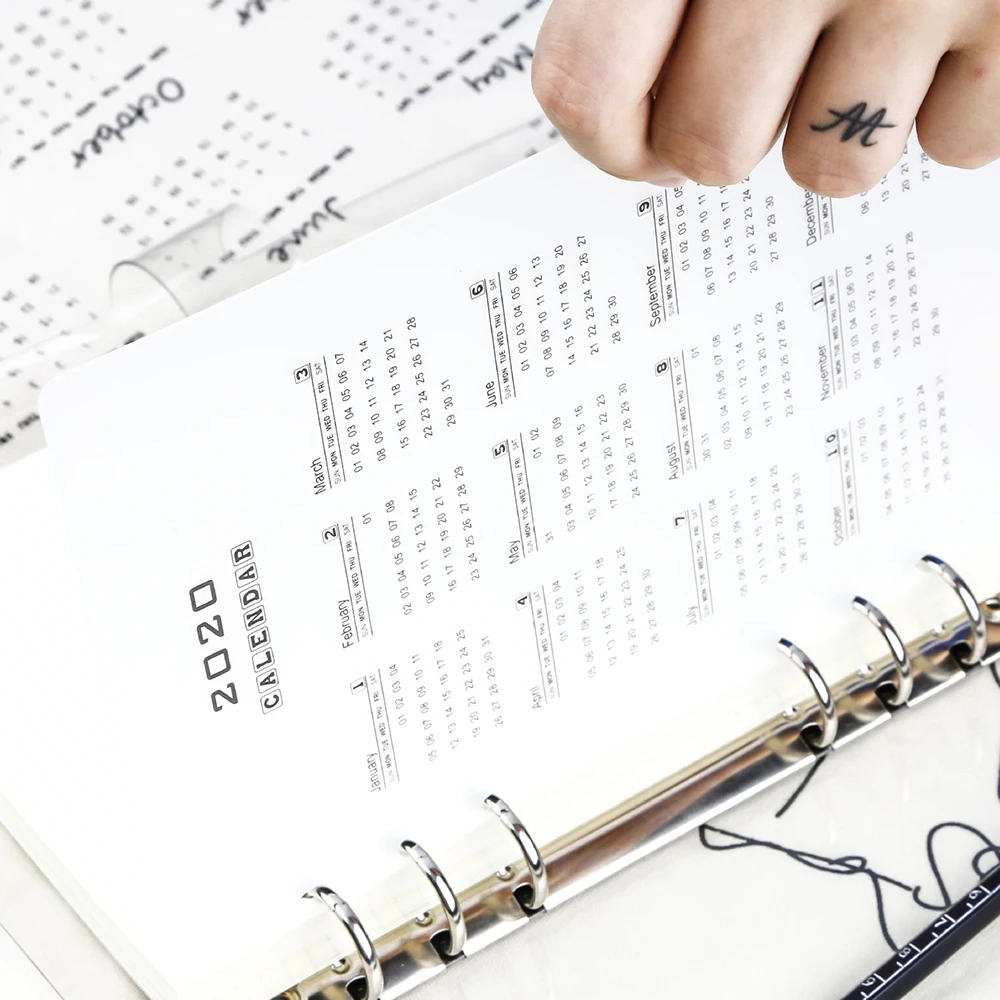 October
May
June
M
2020
CALENDAR
January 1
SUN MON TUE WED THU FRI SAT
01 02 03 04
05 06 07 08 09 10 11
12 13 14 15 16 17 18
19 20 21 22 23 24 25
26 27 28 29 30 31
February 2
SUN MON TUE WED THU FRI SAT
01
02 03 04 05 06 07 08
09 10 11 12 13 14 15
16 17 18 19 20 21 22
23 24 25 26 27 28 29
March 3
SUN MON TUE WED THU FRI SAT
01 02 03 04 05 06 07
08 09 10 11 12 13 14
15 16 17 18 19 20 21
22 23 24 25 26 27 28
29 30 31
April 4
SUN MON TUE WED THU FRI SAT
01 02 03 04
05 06 07 08 09 10 11
12 13 14 15 16 17 18
19 20 21 22 23 24 25
26 27 28 29 30
May 5
SUN MON TUE WED THU FRI SAT
31 01 02
03 04 05 06 07 08 09
10 11 12 13 14 15 16
17 18 19 20 21 22 23
24 25 26 27 28 29 30
June 6
SUN MON TUE WED THU FRI SAT
01 02 03 04 05 06
07 08 09 10 11 12 13
14 15 16 17 18 19 20
21 22 23 24 25 26 27
28 29 30
July 7
SUN MON TUE WED THU FRI SAT
01 02 03 04
05 06 07 08 09 10 11
12 13 14 15 16 17 18
19 20 21 22 23 24 25
26 27 28 29 30 31
August 8
SUN MON TUE WED THU FRI SAT
30 31 01
02 03 04 05 06 07 08
09 10 11 12 13 14 15
16 17 18 19 20 21 22
23 24 25 26 27 28 29
September 9
SUN MON TUE WED THU FRI SAT
01 02 03 04 05
06 07 08 09 10 11
13 14 15 16 17
20 21 22 23 24
27 28 29 30
October 10
SUN MON TUE WED THU FRI SAT
01 02 03
04 05 06 07 08 09 10
11 12 13 14 15 16 17
18 19 20 21 22 23 24
25 26 27 28 29 30 31
November 11
SUN MON TUE WED THU FRI SAT
01 02 03 04 05 06 07
08 09 10 11 12 13 14
15 16 17 18 19 20 21
22 23 24 25 26 27 28
29 30
December
SUN MON
06
13
20 21
27 28